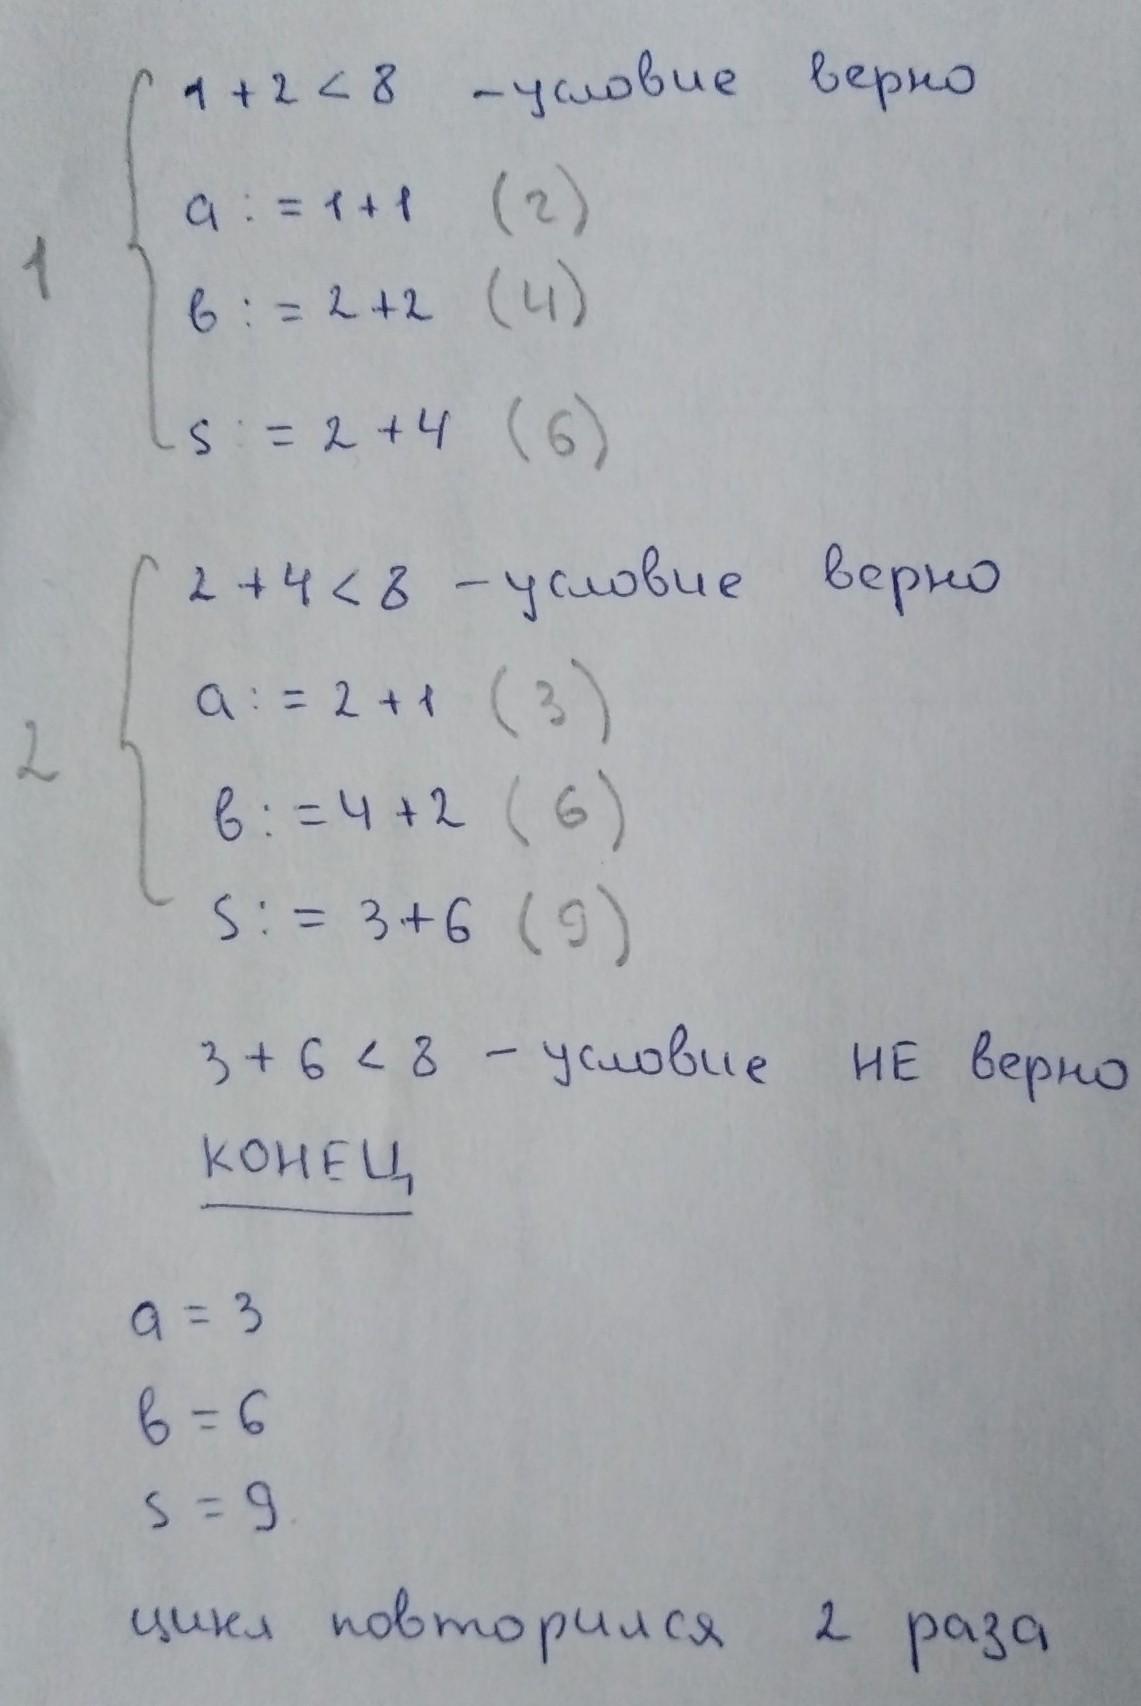 1 + 2 < 8 - условие верно
a := 1 + 1 (2)
1
в := 2 + 2 (4)
s := 2 + 4 (6)
2 + 4 < 8 - условие верно
a := 2 + 1 (3)
2
в := 4 + 2 (6)
s := 3 + 6 (9)
3 + 6 < 8 - условие НЕ верно
КОНЕЦ
a = 3
в = 6
s = 9
цикл повторился 2 раза